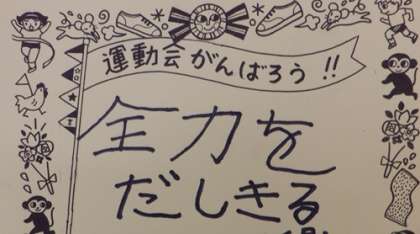 運動会がんばろう!!
全力を
だしきる